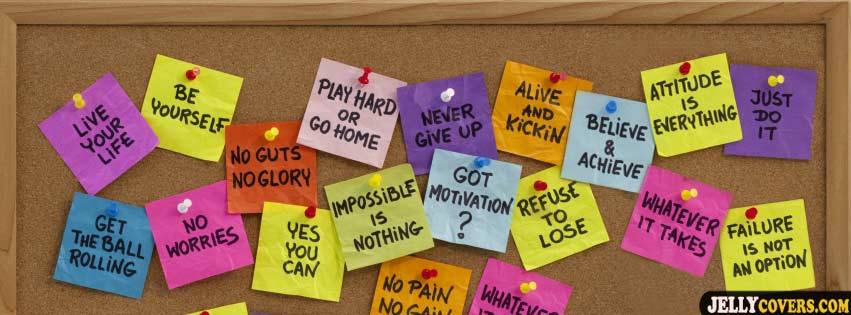 LIVE
YOUR
LIFE
BE
YOURSELF
NO GUTS
NO GLORY
PLAY HARD
OR
GO HOME
NEVER
GIVE UP
ALIVE
AND
KICKIN
BELIEVE
&
ACHIEVE
ATTITUDE
IS
EVERYTHING
JUST
DO
IT
GET
THE BALL
ROLLING
NO
WORRIES
YES
YOU
CAN
IMPOSSIBLE
IS
NOTHING
GOT
MOTIVATION
?
REFUSE
TO
LOSE
WHATEVER
IT TAKES
FAILURE
IS NOT
AN OPTION
NO PAIN
NO GAIN
WHATEVER
JELLYCOVERS.COM